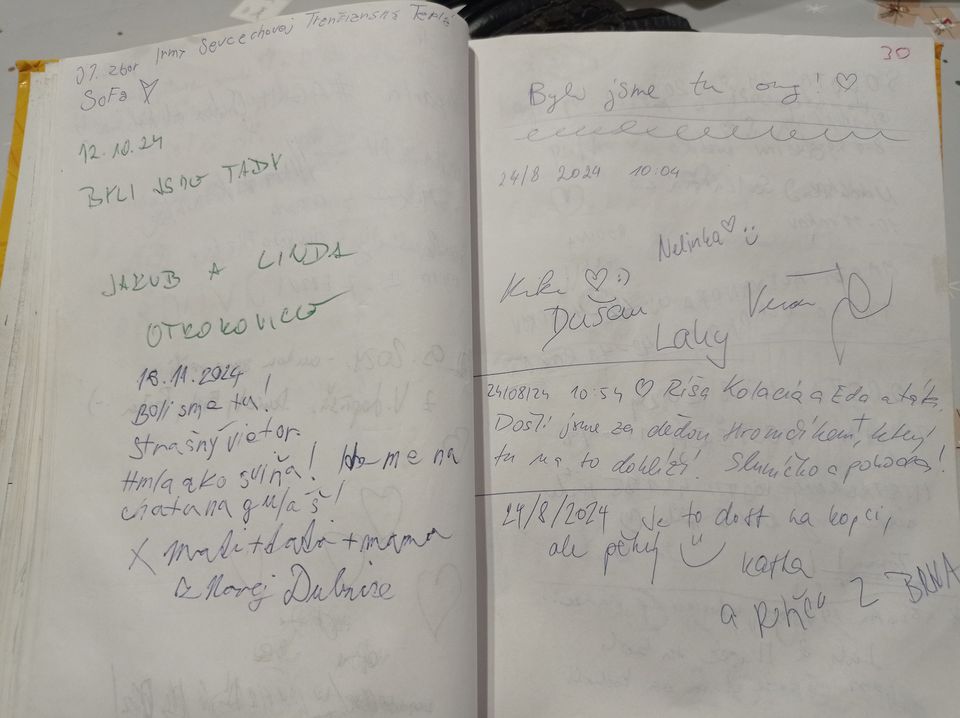 07. zbor Irmy Sevcechovej Trenčianska Teplá
SoFa
12.10.24
BYLI JSME TADY
JAKUB A LINDA
OTROKOVICE
18.11.2024
Boli sme tu!
Strašný vietor.
Hmla ako sviňa! me na
chatu na guláš!
X Mati + tata + mama
z Novej Dubnice
30
Byli jsme tu omg! ♡
24/8 2024 10:04
Nelinka ♡ :)
Kiki ♡ :)
Dušan
Laky
24/08/24 10:54 ♡ Ríša Kolaciá a Eda a táta.
Došli jsme za dědou Hromčíkem, který
tu na to dohlíží! Sluníčko a pohoda!
24/8/2024 Je to dost na kopci,
ale pěkný
Katka
a z BRNA